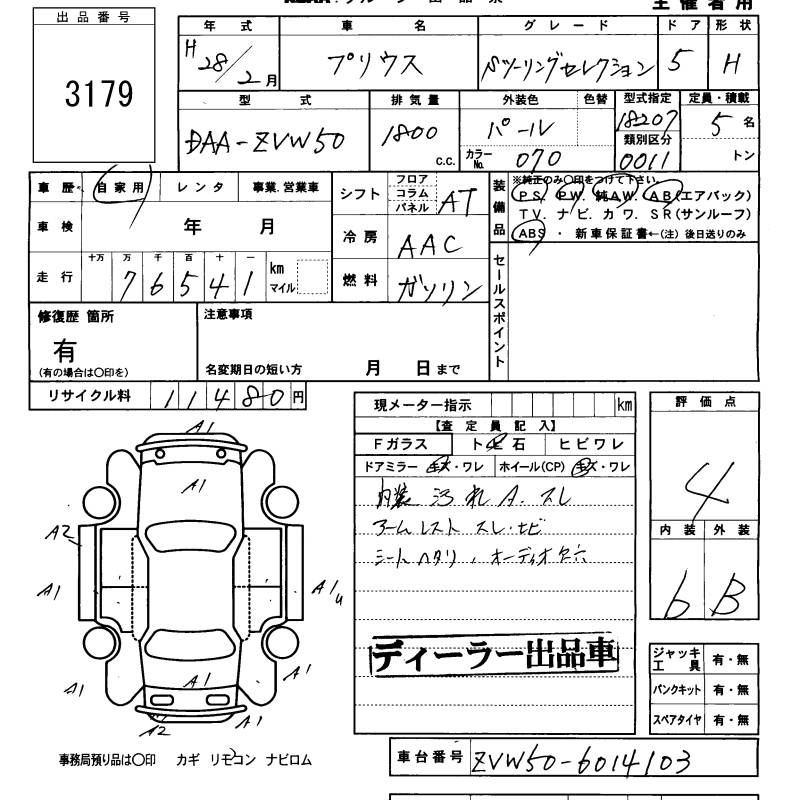 出品番号
3179
年式 車名 グレード ドア 形状
H28/2月 プリウス Sツーリングセレクション 5 H
型式 排気量 外装色 色替 型式指定 定員・積載
DAA-ZVW50 1800 C.C. パール 18207 5名
カラーNo. 070 類別区分 0011 トン
車歴 自家用 レンタ 事業.営業車
車検 年 月
走行 十万 万 千 百 十 一
76541 km マイル
シフト フロア コラム パネル AT
冷房 AAC
燃料 ガソリン
装備品 ※純正のみ〇印をつけて下さい。
PS. PW. 純AW. AB(エアバック)
TV. ナビ. カワ. SR(サンルーフ)
ABS ・ 新車保証書←(注) 後日送りのみ
セールスポイント
修復歴 箇所
有
(有の場合は〇印を)
注意事項
名変期日の短い方 月 日まで
リサイクル料 11480円
現メーター指示 km
【査定員記入】
Fガラス ト 石 ヒビワレ
ドアミラー キズ・ワレ ホイール(CP) キズ・ワレ
内装 汚れ A.スレ
アームレスト スレ・ナビ
シート ヘタリ, オーディオ
ディーラー出品車
評価点
4
内装 外装
b B
ジャッキ工具 有・無
パンクキット 有・無
スペアタイヤ 有・無
A1
A1
A2
A1
A1u
A1
A1
A1
A1
A2
事務局預り品は〇印 カギ リモコン ナビロム
車台番号 ZVW50-6014103